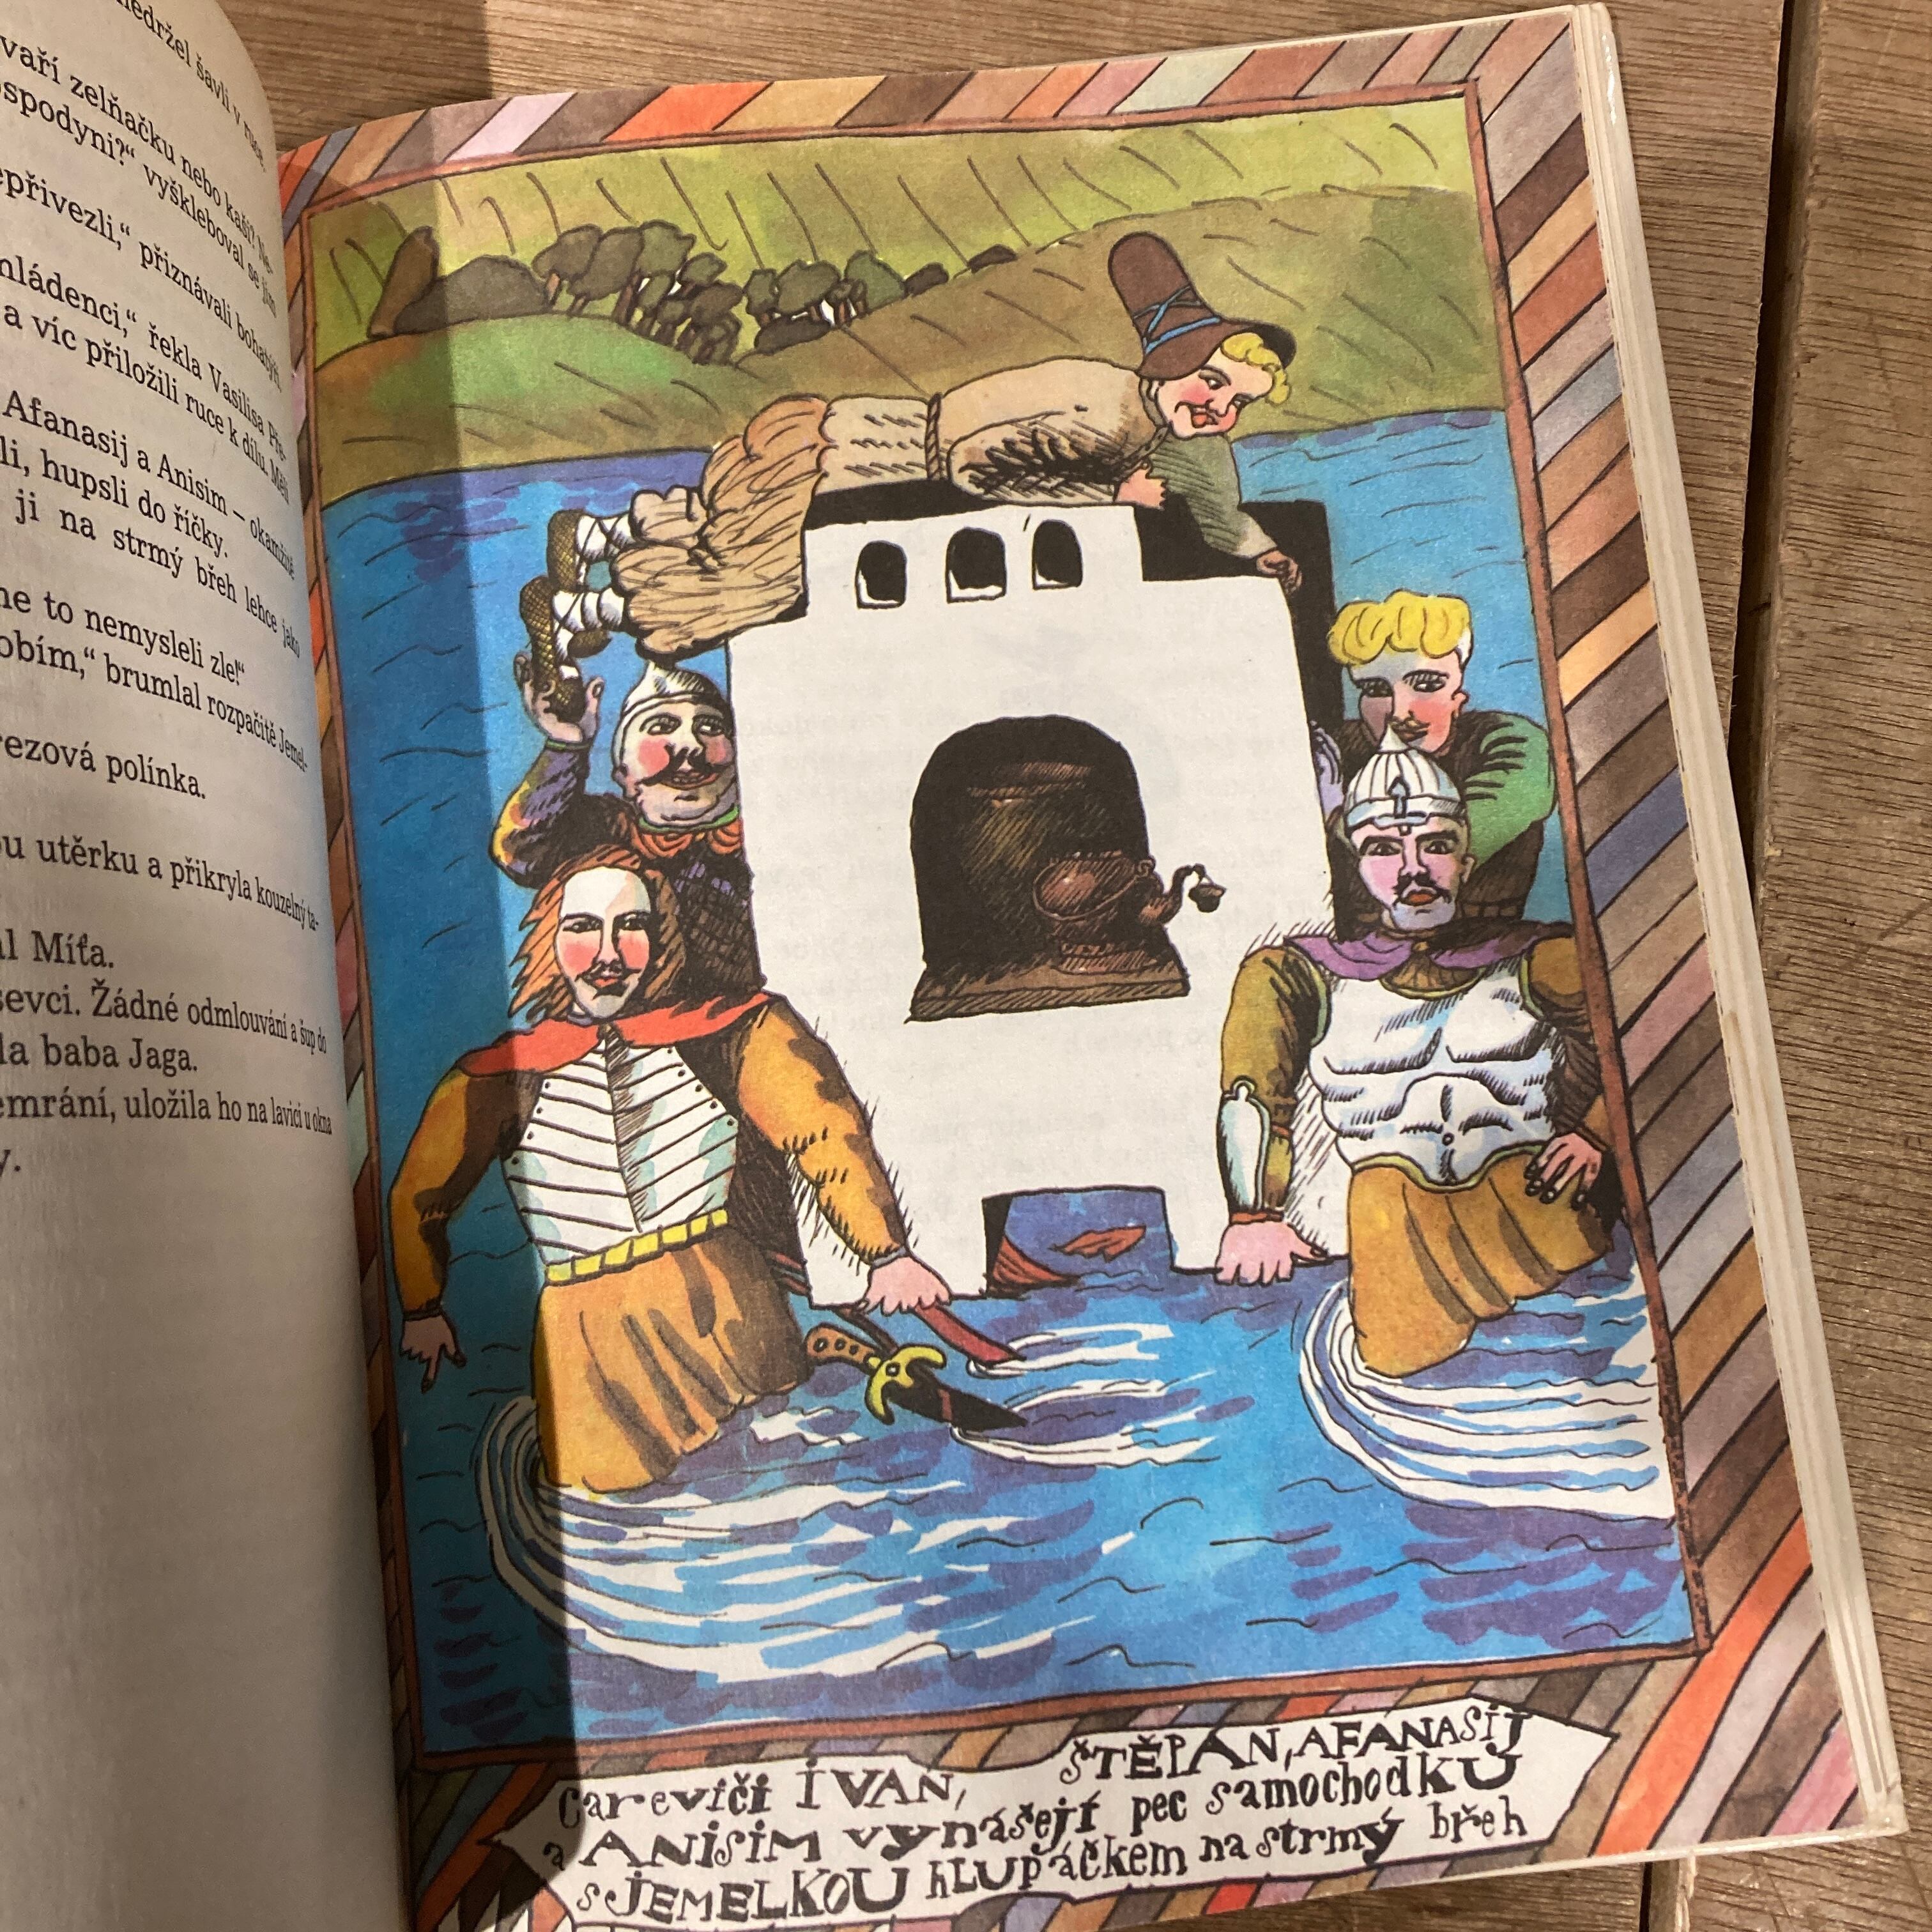 nedržel šavli v ruce.
vaří zelňačku nebo kaši? Ne-
ospodyni?“ vyškleboval se jim
epřivezli,“ přiznávali bohatýři.
mládenci,“ řekla Vasilisa Pře-
a víc přiložili ruce k dílu. Měli
Afanasij a Anisim – okamžitě
li, hupsli do říčky.
ji na strmý břeh lehce jako
me to nemysleli zle!“
obím,“ brumlal rozpačitě Jemel-
rezová polínka.
ou utěrku a přikryla kouzelný ta-
al Míťa.
sevci. Žádné odmlouvání a šup do
la baba Jaga.
emrání, uložila ho na lavici u okna
y.
Careviči IVAN, ŠTĚPÁN, AFANASIJ
a ANISIM vynášejí pec samochodku
s JEMELKOU hlupáčkem na strmý břeh